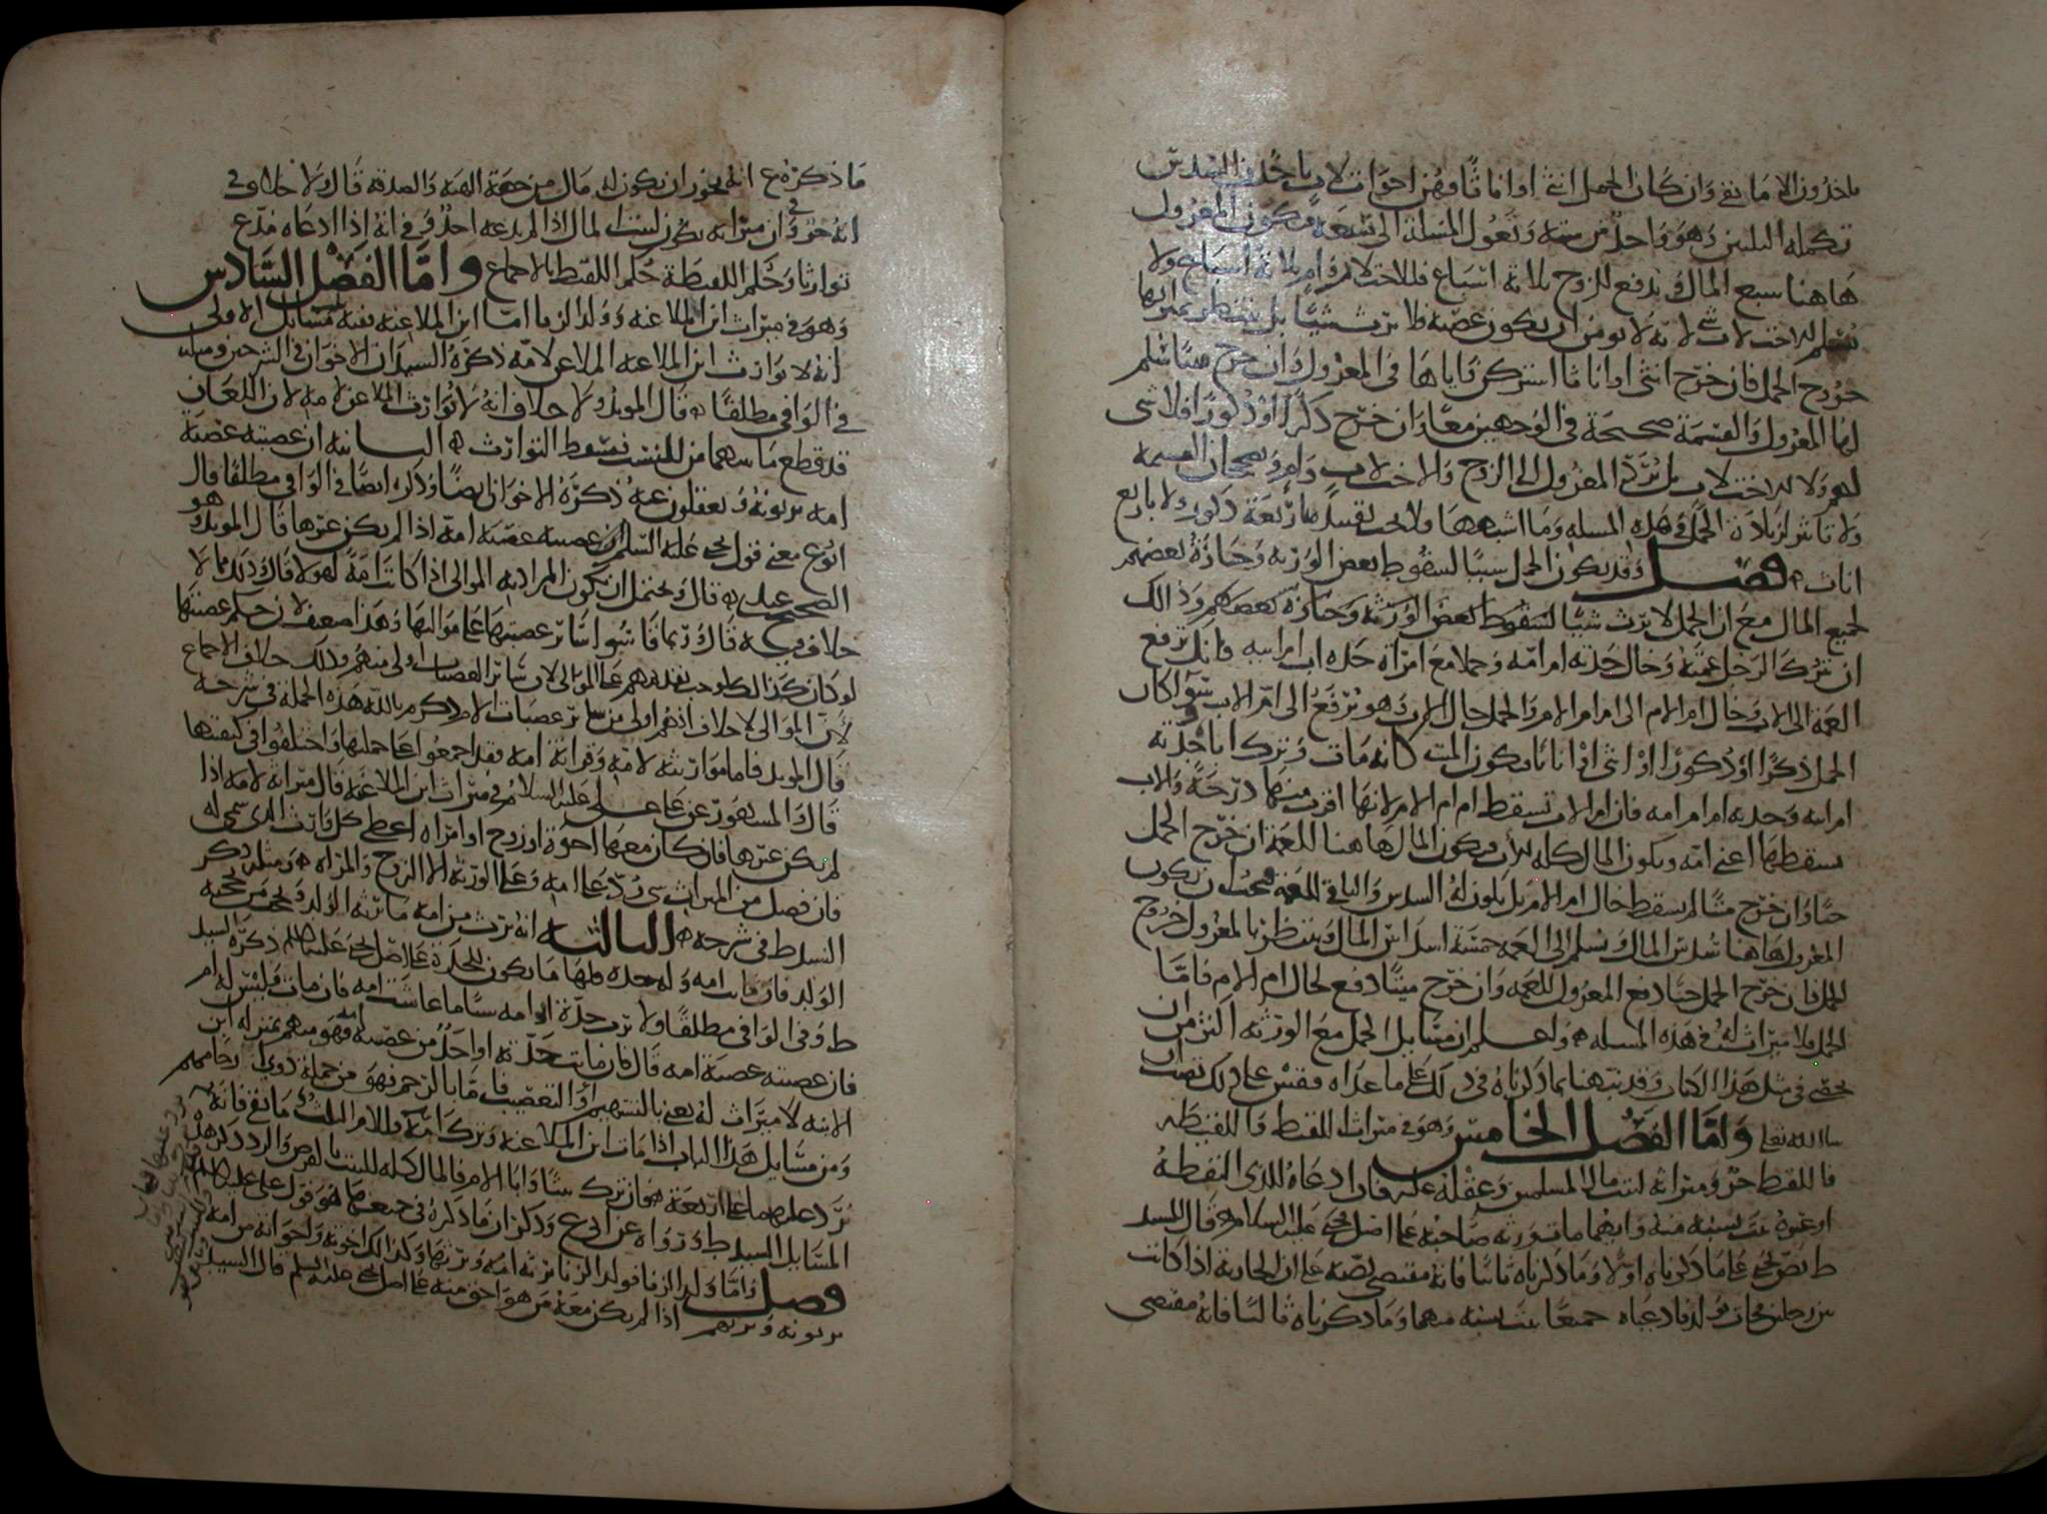 ياخذون الا ما بقي وان كان الحمل انثى او اناثا فهن اخوات لاب ياخذن السدس
تكملة الثلثين وهو واحد من ستة وتعول المسلة الى تسعة ويكون المعزول
هاهنا سبع المال ويدفع للزوج ثلاثة اسباع وللاخت لاب وام ثلاثة اسباع ولا
يسلم للاخت لاب شي لانه لا يومن ان يكون عصبة فلا ترث شيا بل ينتظر بميراثها
خروج الحمل فان خرج انثى او اناثا اشتركن واياها في المعزول وان خرج ميتا سلم
لها المعزول والقسمة صحيحة في الوجهين معا وان خرج ذكرا او ذكورا فلا شي
لهم ولا للاخت لاب بل يرد المعزول الى الزوج والاخت لاب وام وتصحان القسمة
ولا تاثير لزيادة الحمل في هذه المسلة وما اشبهها ولا يجب تقسيط باربعة ذكور ولا باربع
اناث فصل وقد يكون الحمل سببا لسقوط بعض الورثة وحيازة بعضهم
لجميع المال مع ان الحمل لا يرث شيا لسقوط بعض الورثة وحيازة بعضهم وذلك
ان ترك الرجل عمته وخال جدته ام امه وحملا مع امراة جده اب ام ابيه فانك ترفع
العمة الى الاب وخال ام الام الى ام ام الام والحمل خال الاب وهو يرفع الى ام الاب سوا كان
الحمل ذكرا او ذكورا او انثى او اناثا ويكون الميت كانه مات وترك اباه وجدته
ام ابيه وجدته ام ام امه فان ام الاب تسقط ام ام الام لانها اقرب منها درجة والاب
يسقطها اعني امه ويكون المال كله للاب ويكون المال هاهنا للعمة ان خرج الحمل
حيا وان خرج ميتا لم يسقط خال ام الام بل يكون له السدس والباقي للعمة فيجب ان يكون
المعزول هاهنا سدس المال ويسلم الى العمة خمسة اسداس المال وينتظر بالمعزول خروج
الحمل فان خرج الحمل حيا دفع المعزول للعمة وان خرج ميتا دفع لخال ام الام فاما
الحمل فلا ميراث له في هذه المسلة واعلم ان مسايل الحمل مع الورثة اكثر من ان
تحصى في مثل هذا الكتاب وقد نبهنا بما ذكرناه في ذلك على ما عداه فقس على ذلك تصب ان
شا الله تعالى واما الفصل الخامس وهو في ميراث اللقيط واللقيطة
فاللقيط حر وميراثه لبيت مال المسلمين وعقله عليه فان ادعاه الذي التقطه
او غيره ثبت نسبه منه وايهما مات ورثه صاحبه على اصل يحيى عليه السلام قال السيد
ط نص يحيى على ما ذكرناه اولا وما ذكرناه ثانيا فانه مقتضى نصه على ان الجارية اذا كانت
بين رجلين فجات بولد فادعياه جميعا ثبت نسبه منهما وما ذكرناه ثالثا فانه مقتضى
ما ذكره ع انه يجوز ان يكون له مال من جهة الهبة والصدقة قال ولا خلاف في
انه حر وفي ان ميراثه يكون لبيت المال اذا لم يدعه احد وفي انه اذا ادعاه مدع
توارثا وحكم اللقيطة حكم اللقيط بالاجماع واما الفصل السادس
وهو في ميراث ابن الملاعنة وولد الزنا اما ابن الملاعنة ففيه مسايل الاولى
انه لا توارث ابن الملاعنة الملاعن لامه ذكره السيدان الاخوان في الشرحين ومثله
في الوافي مطلقا قال المويد ولا خلاف انه لا توارث الملاعن لامه لان اللعان
قد قطع ما بينهما من النسب فسقط التوارث الثانية ان عصبته عصبة
امه يرثونه ويعقلون عنه ذكره الاخوان ايضا وذكره ايضا في الوافي مطلقا قال
ابو ع معنى قول يحيى عليه السلم ان عصبته عصبة امه اذا لم يكن غيرها قال المويد هو
الصحيح عندي قال ويحتمل ان يكون المراد به الموالي اذا كانت امه لهم ولا قال وذلك مما لا
خلاف فيه قال وربما قاسوا ساير عصبتها على مواليها وهذا ضعف لان حكم عصبتها
لو كان كذلك لوجب تقديمهم على الموالي لان ساير العصبات اولى منهم وذلك خلاف الاجماع
لان الموالي لا خلاف انهم اولى من ساير عصبات الام ذكر م بالله هذه الجملة في شرحه
قال المويد فاما موارثته لامه وقرابة امه فقد اجمعوا على جملتها واختلفوا في كيفيتها
قال والمشهور عن علي عليه السلام في ميراث ابن الملاعنة قال ميراثه لامه اذا
لم يكن غيرها فان كان معها اخوة او زوج او امراة اعطي كل وارث الذي سمي له
فان فضل من الميراث شي رد على امه وعلى الورثة الا الزوج والمراة ومثله ذكر
السيد ط في شرحه الثالثة انه يرث من امه ما يرثه الولد ويحجب من يحجبه
الولد فان ماتت امه وله جده فلها ما يكون للجدة على اصل يحيى عليه السلم ذكره السيد
ط وفي الوافي مطلقا ولا ترث جدته ام امه شيا ما عاشت امه فان مات وليس له ام
فان عصبته عصبة امه قال فان ماتت جدته او احد من عصبة امه فهو منهم بمنزلة ابن
الابنة لا ميراث له يعني بالتسهيم او التعصيب فاما بالرحم فهو من جملة ذوي ارحامهم
ومن مسايل هذا الباب اذا مات ابن الملاعنة وترك امه فللام الثلث وما بقي فانه
يرد عليهما على اربعة فان ترك بنتا وابا الام فالمال كله للبنت بالفرض والرد ذكر هذه
المسايل السيد ط ورواه عن ابي ع وذكر ان ما ذكره في جميعها هو قول علي عليه السلم
فصل واما ولد الزنا فولد الزنا ترثه امه ويرثها وكذلك اخوته واخواته من امه
يرثونه ويرثهم اذا لم يكن معه من هو احق منه على اصل يحيى عليه السلم قال السيد